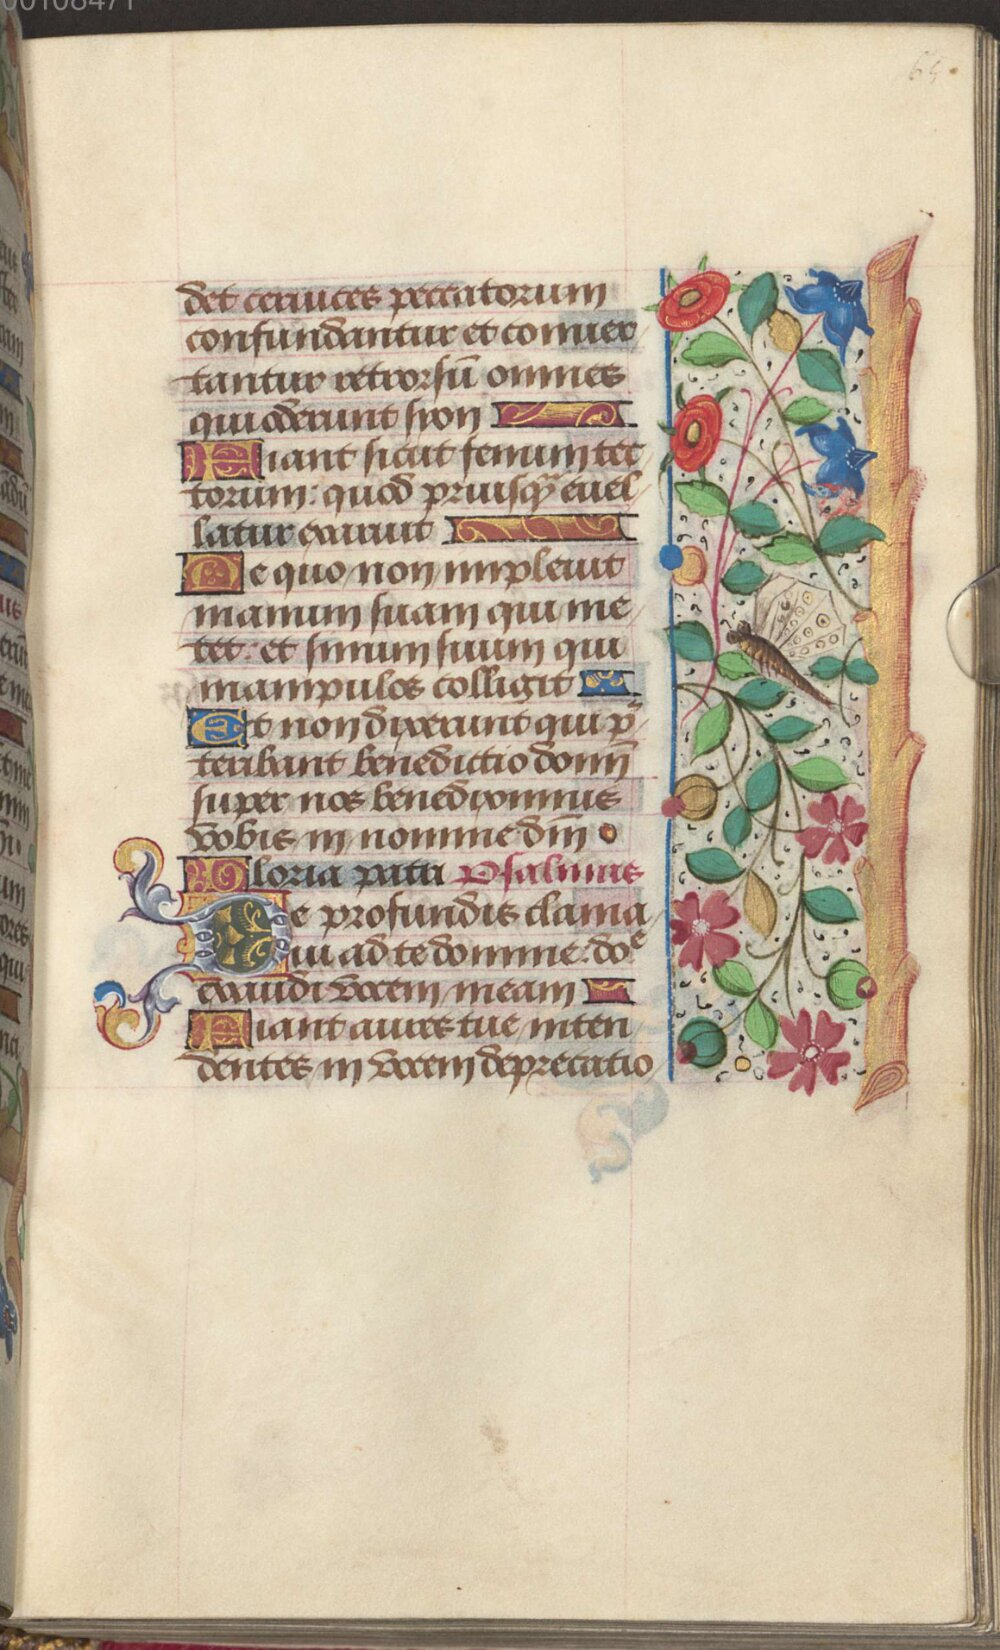 00108471
65.
det ceruices peccatorum
confundantur et conuer
tantur retrorsū omnes
qui oderunt sion
Fiant sicut fenum tec
torum: quod priusq̄ euel
latur exaruit
De quo non impleuit
manum suam qui me
tet: et sinum suum qui
manipulos colligit
Et non dixerunt qui p̄
teribant benedictio domī
super nos benediximus
vobis in nomine dm̄
Gloria patri Psalmus
De profundis clama
ui ad te domine: doe
exaudi vocem meam
Fiant aures tue inten
dentes in vocem deprecatio